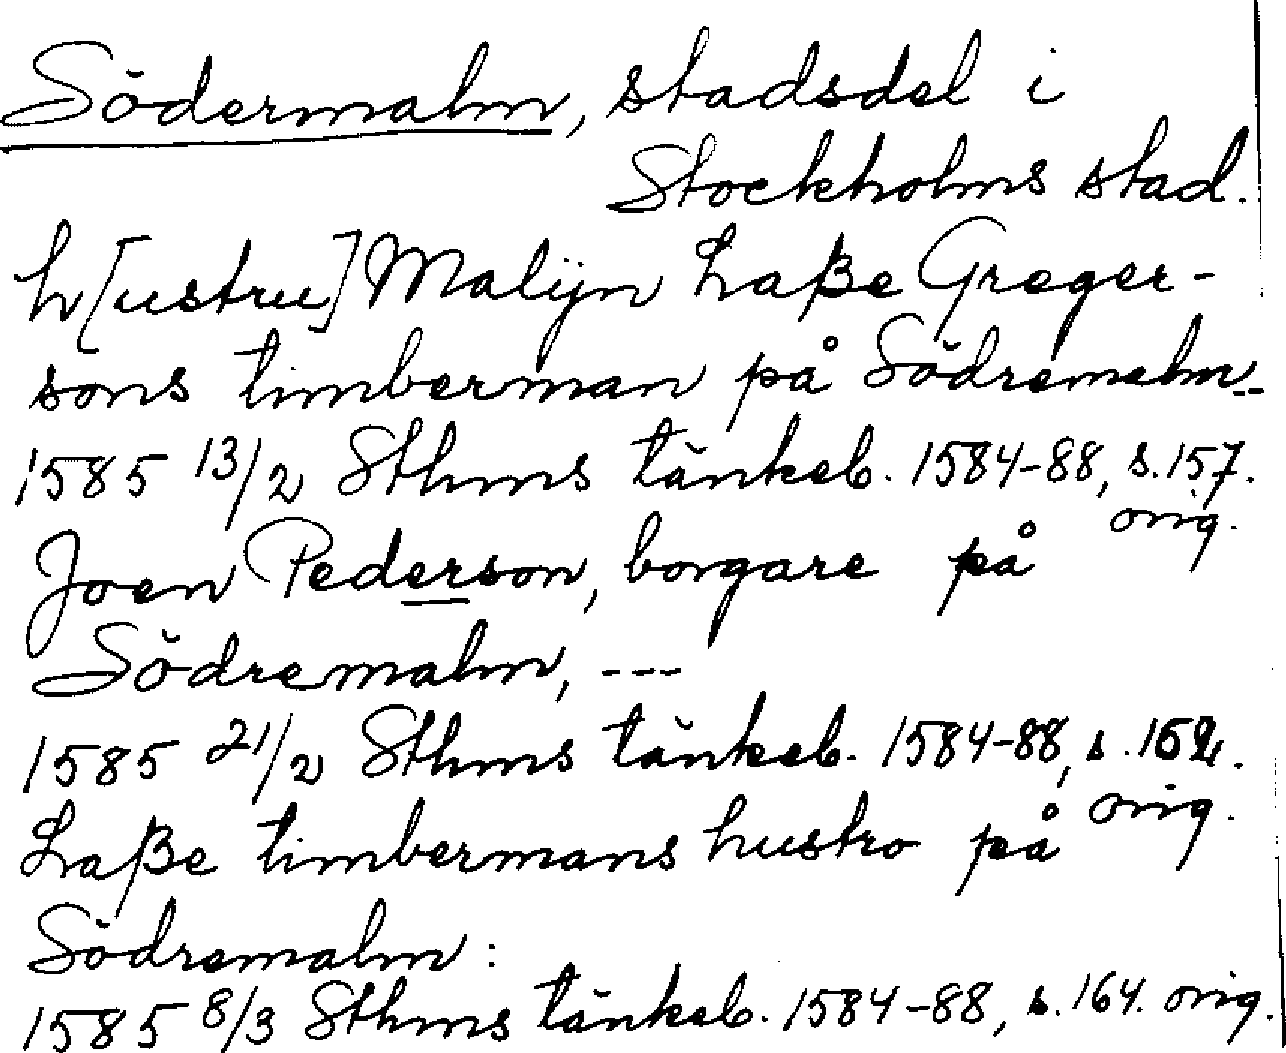 Södermalm, stadsdel i
Stockholms stad.
h[ustru] Malijn Laße Greger-
sons timberman på Södremalm --
1585 13/2 Sthms tänkeb. 1584-88, s.157.
orig.
Joen Pederson, borgare på
Södremalm, ---
1585 21/2 Sthms tänkeb. 1584-88, s.
orig.
Laße timbermans hustro på
Södremalm:
1585 8/3 Sthms tänkeb. 1584-88, s. 164. orig.